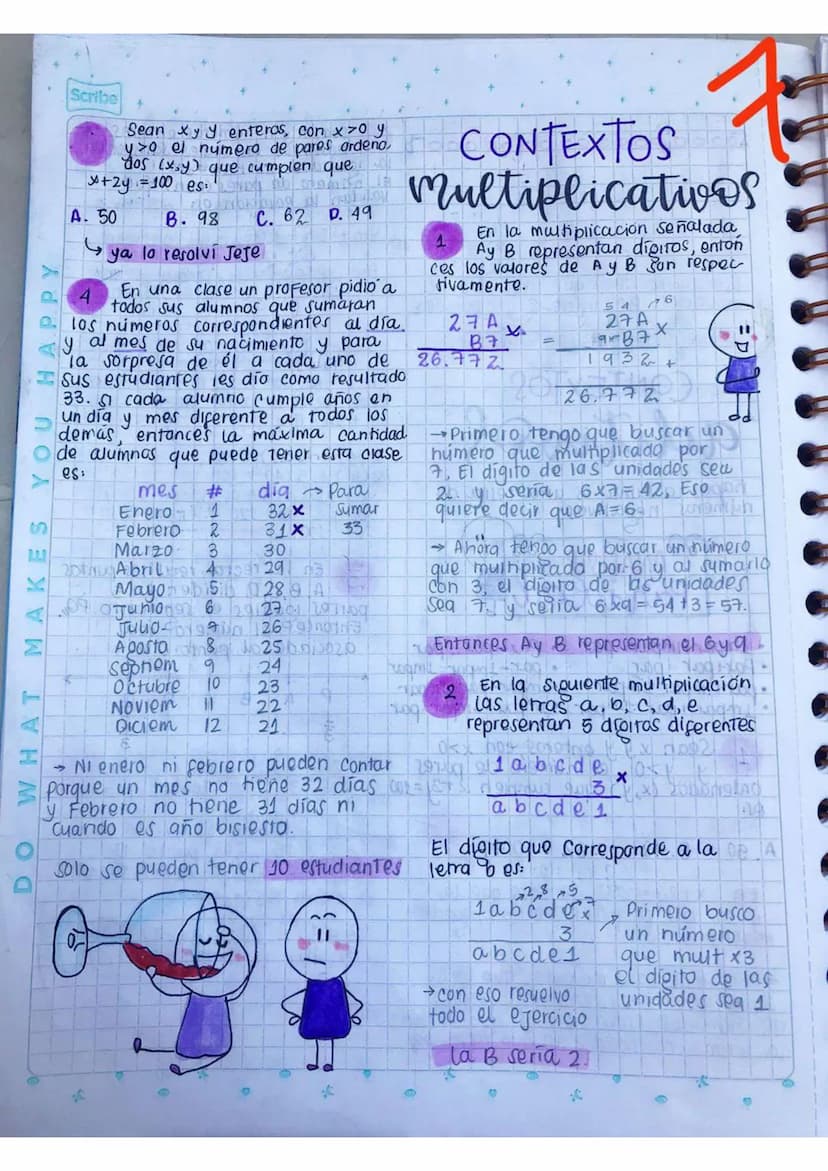 7
Scribe
DO WHAT MAKES YOU HAPPY
Sean x y y enteros, con x>0 y
y>0 el número de pares ordena
dos (x,y) que cumplen que
x+2y=100 es:
A. 50 B. 98 C. 62 D. 49
↳ ya lo resolví JeJe
4 En una clase un profesor pidió a
todos sus alumnos que sumaran
los números correspondientes al día
y al mes de su nacimiento y para
la sorpresa de él a cada uno de
sus estudiantes les dio como resultado
33. si cada alumno cumple años en
un día y mes diferente a todos los
demás, entonces la máxima cantidad
de alumnos que puede tener esta clase
es:
mes # día → Para
Enero 1 32 x sumar
Febrero 2 31 x 33
Marzo 3 30
Abril 4 29
Mayo 5 28
Junio 6 27
Julio 7 26
Agosto 8 25
Septiem 9 24
Octubre 10 23
Noviem 11 22
Diciem 12 21
→ Ni enero ni febrero pueden contar
porque un mes no tiene 32 días
y Febrero no tiene 31 días ni
cuando es año bisiesto.
Solo se pueden tener 10 estudiantes
CONTEXTOS
multiplicativos
1 En la multiplicación señalada,
A y B representan dígitos, enton
ces los valores de A y B son respec-
tivamente.
5 4 → 6
27A x = 27A x
B7 9←B7
26.772 1932 +
26.772
→ Primero tengo que buscar un
número que multiplicado por
7, El dígito de las unidades sea
2 y sería 6x7=42, Eso
quiere decir que A=6.
→ Ahora tengo que buscar un número
que multiplicado por 6 y al sumarlo
con 3, el dígito de las unidades
sea 7, y sería 6x9=54+3=57.
Entonces A y B representan el 6 y 9
2 En la siguiente multiplicación
las letras a, b, c, d, e
representan 5 dígitos diferentes
1 a b c d e x
3
a b c d e 1
El dígito que corresponde a la
letra b es:
2 8 5 7
1 a b c d e x
3
a b c d e 1
→ Primero busco
un número
que mult x3
el dígito de las
unidades sea 1
→ con eso resuelvo
todo el ejercicio
la B sería 2.